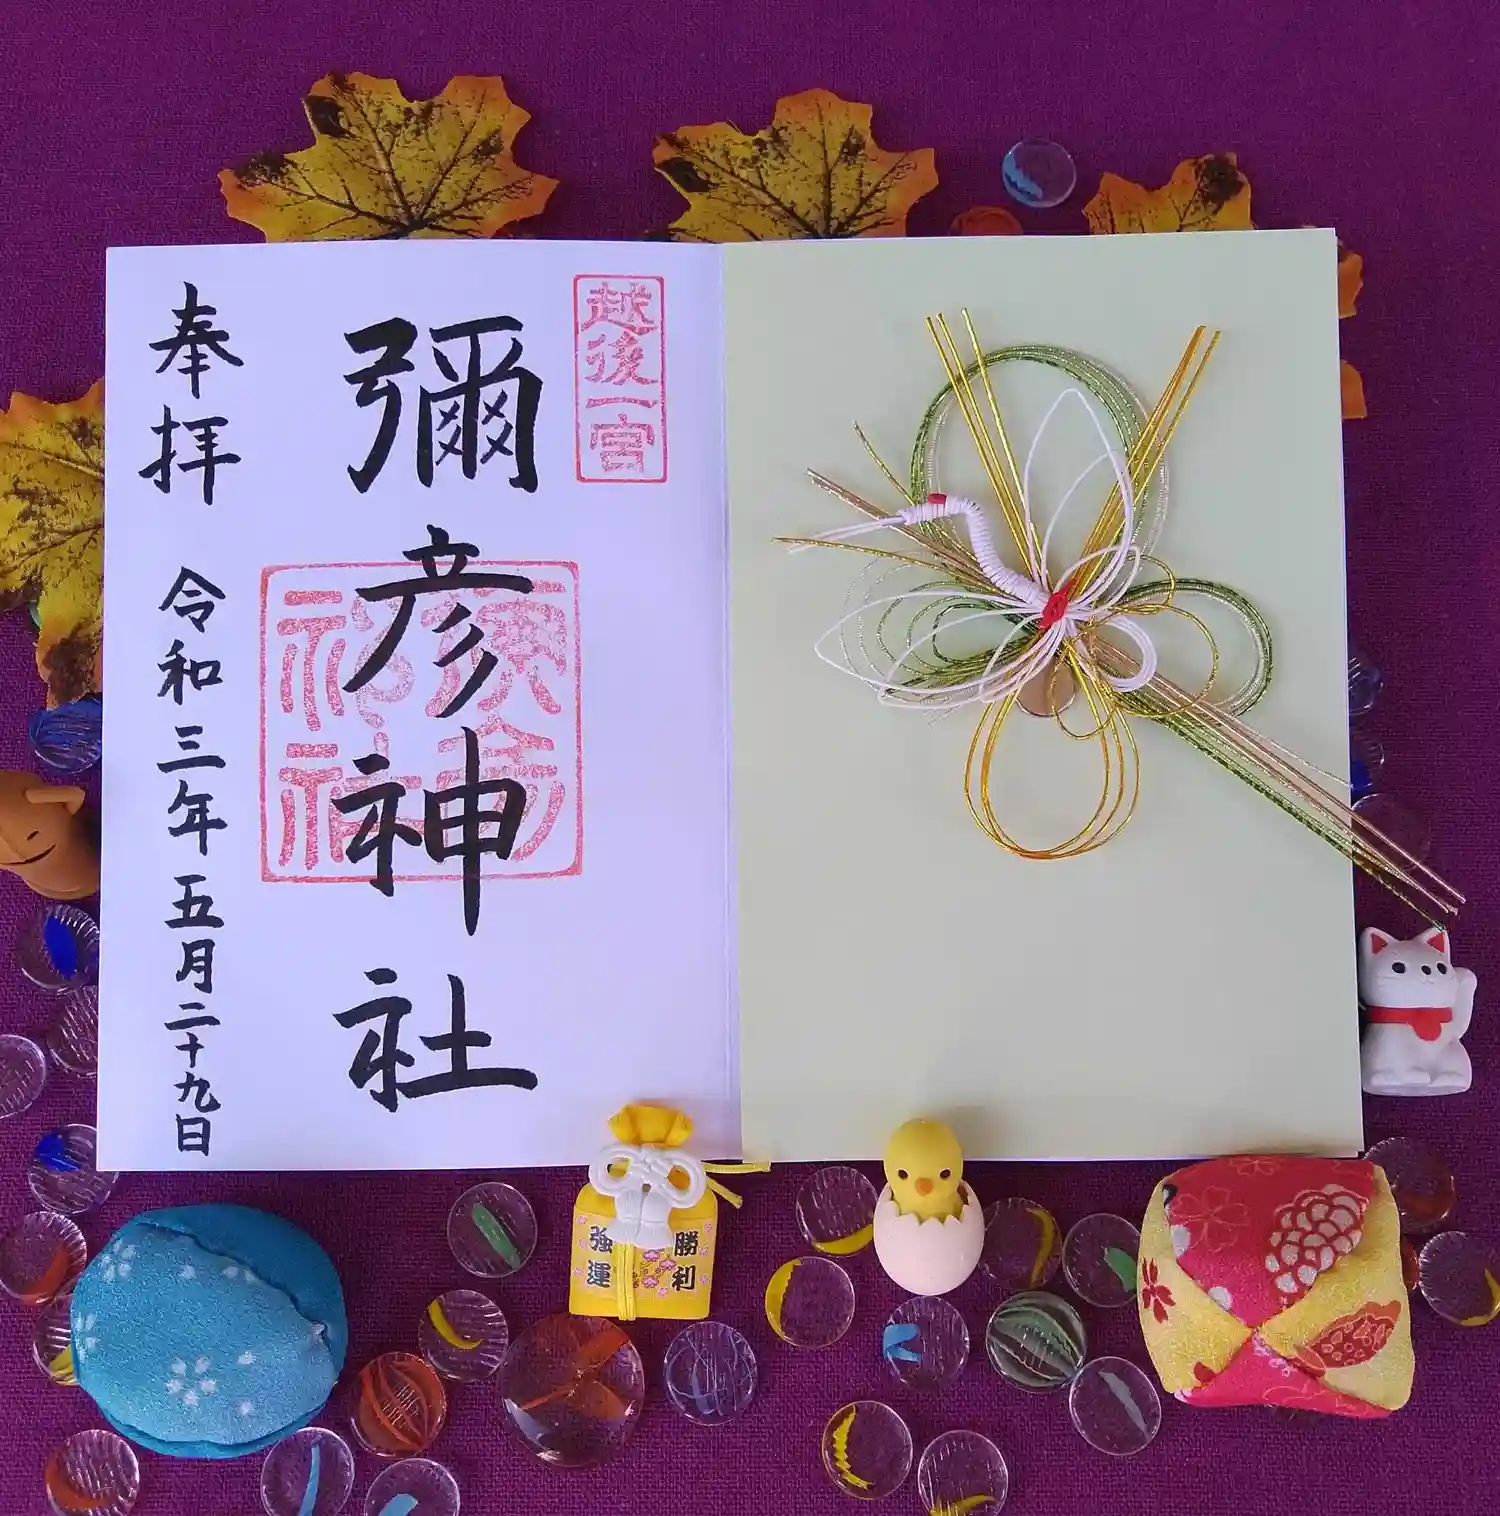 越後一宮
彌彦神社
奉拝
令和三年五月二十九日
強運
勝利